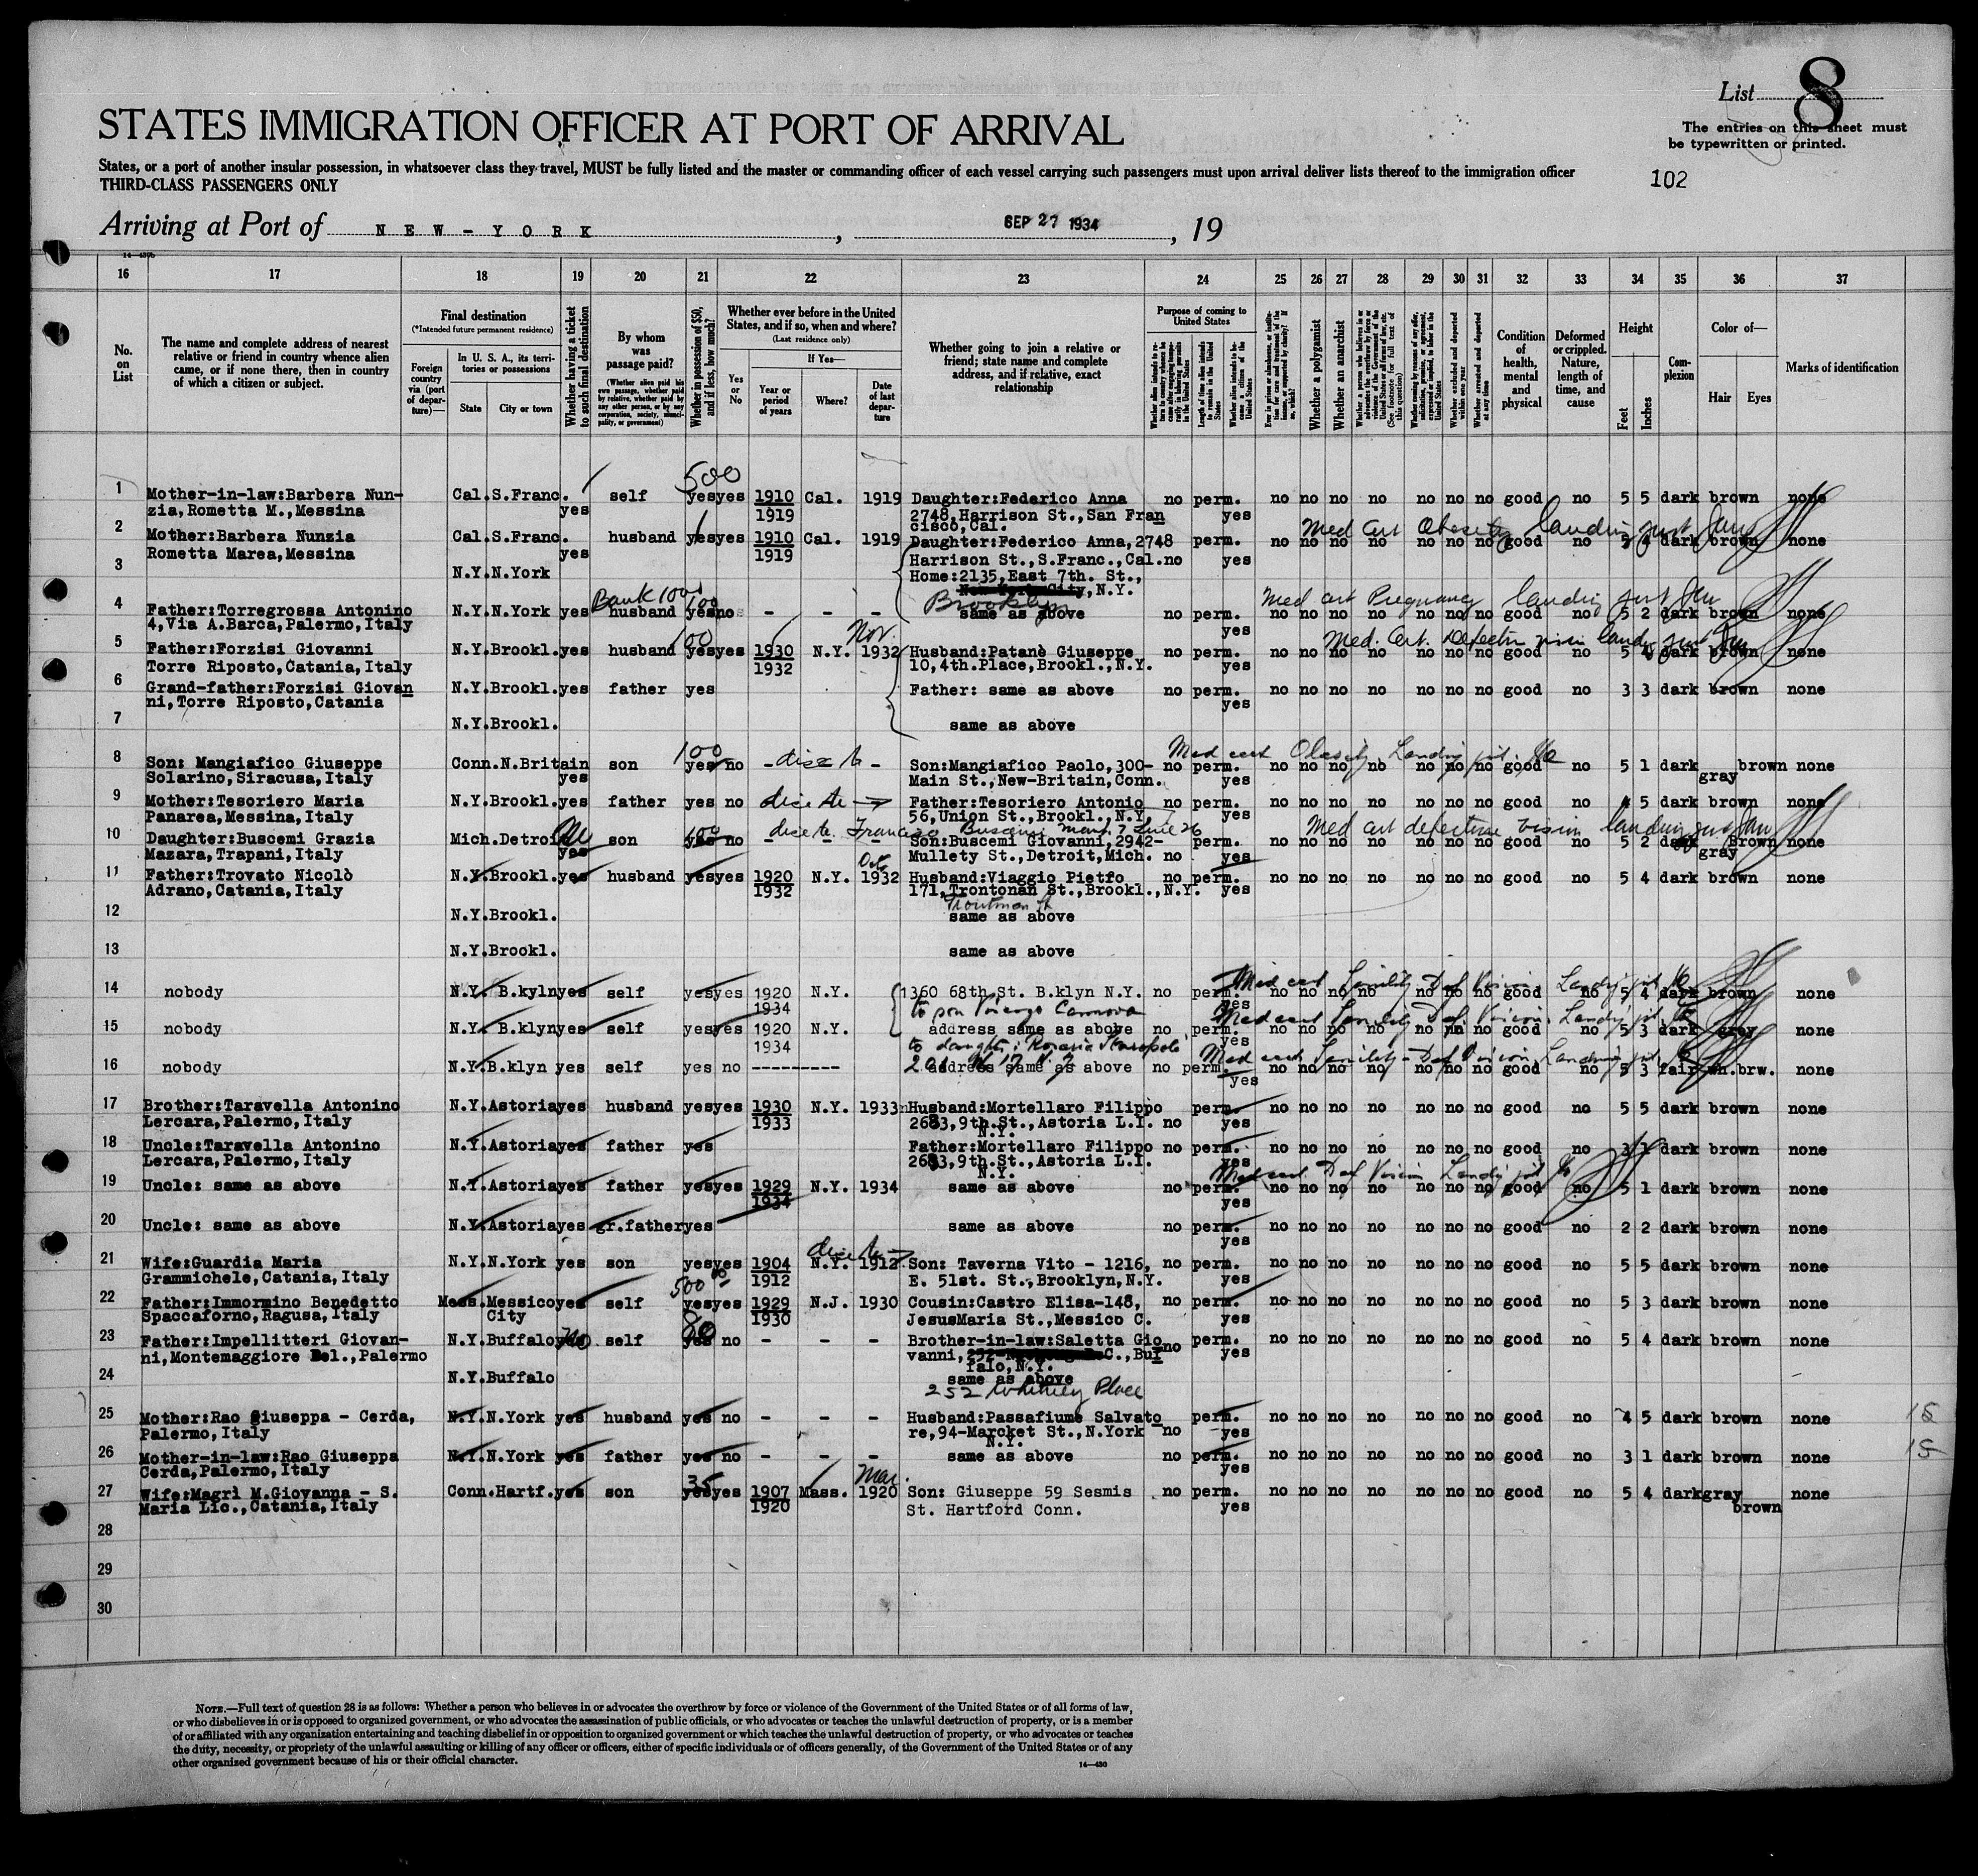 List 8
STATES IMMIGRATION OFFICER AT PORT OF ARRIVAL
The entries on this sheet must
be typewritten or printed.
States, or a port of another insular possession, in whatsoever class they travel, MUST be fully listed and the master or commanding officer of each vessel carrying such passengers must upon arrival deliver lists thereof to the immigration officer
THIRD-CLASS PASSENGERS ONLY
102
Arriving at Port of NEW-YORK, SEP 27 1934, 19
16 17 18 19 20 21 22 23 24 25 26 27 28 29 30 31 32 33 34 35 36 37
No. on List
The name and complete address of nearest relative or friend in country whence alien came, or if none there, then in country of which a citizen or subject.
Final destination
(*Intended future permanent residence)
Foreign country via (port of departure)—
In U. S. A., its territories or possessions
State City or town
Whether having a ticket to such final destination
By whom was passage paid?
(Whether alien paid his own passage, whether paid by relative, whether paid by any other person, or by any corporation, society, municipality, or government)
Whether in possession of $50, and if less, how much?
Whether ever before in the United States, and if so, when and where?
(Last residence only)
Yes or No
If Yes—
Year or period of years
Where?
Date of last departure
Whether going to join a relative or friend; state name and complete address, and if relative, exact relationship
Purpose of coming to United States
Length of time alien intends to remain in the United States
Whether alien intends to become a citizen of the United States
Whether a polygamist
Whether an anarchist
Whether excluded and deported within one year
Whether arrested and deported at any time
Condition of health, mental and physical
Deformed or crippled. Nature, length of time, and cause
Height
Feet Inches
Complexion
Color of—
Hair Eyes
Marks of identification
500
1 Mother-in-law:Barbera Nun- Cal. S.Franc. self yes yes 1910 Cal. 1919 Daughter:Federico Anna no perm. no no no no no no no no good no 5 5 dark brown none
zia,Rometta M.,Messina yes 1919 2748,Harrison St.,San Fran yes
cisco,Cal. Med cert Obesity landing
2 Mother:Barbera Nunzia Cal. S.Franc. husband yes yes 1910 Cal. 1919 Daughter:Federico Anna,2748 perm. no no no no no no no no good no 5 4 dark brown none
Rometta Marea,Messina yes 1919 Harrison St.,S.Franc.,Cal. no yes
3 N.Y. N.York Home:2135,East 7th. St.,
N.Y.
Bank 100 100 Brooklyn Med cert Pregnancy landing
4 Father:Torregrossa Antonino N.Y. N.York yes husband yes no - - - same as above perm. no no no no no no no no good no 5 2 dark brown none
4,Via A.Barca,Palermo,Italy yes
100 Nov. Med. Cert. Defective vision
5 Father:Forzisi Giovanni N.Y. Brookl. yes husband yes yes 1930 N.Y. 1932 Husband:Patanè Giuseppe no perm. no no no no no no no no good no 5 4 dark brown none
Torre Riposto,Catania,Italy 1932 10,4th.Place,Brookl.,N.Y. yes
6 Grand-father:Forzisi Giovan N.Y. Brookl. yes father yes Father: same as above no perm. no no no no no no no no good no 3 3 dark brown none
ni,Torre Riposto,Catania yes
7 N.Y. Brookl. same as above
100 Med cert Obesity Landing
8 Son: Mangiafico Giuseppe Conn. N.Britain son yes no - - Son:Mangiafico Paolo,300- no perm. no no no no no no no no good no 5 1 dark brown none
Solarino,Siracusa,Italy yes Main St.,New-Britain,Conn. yes gray
9 Mother:Tesoriero Maria N.Y. Brookl. yes father yes no Father:Tesoriero Antonio no perm. no no no no no no no no good no 4 5 dark brown none
Panarea,Messina,Italy 56,Union St.,Brookl.,N.Y. yes
100 Med cert defective vision landing
10 Daughter:Buscemi Grazia Mich. Detroit son yes no - - - Son:Buscemi Giovanni,2942- perm. no no no no no no no no good no 5 2 dark Brown none
Mazara,Trapani,Italy yes Mullety St.,Detroit,Mich. no yes gray
Oct.
11 Father:Trovato Nicolò N.Y. Brookl. yes husband yes yes 1920 N.Y. 1932 Husband:Viaggio Pietfo no perm. no no no no no no no no good no 5 4 dark brown none
Adrano,Catania,Italy 1932 171,Trontonan St.,Brookl.,N.Y. yes
Troutman St
12 N.Y. Brookl. same as above
13 N.Y. Brookl. same as above
Med cert Senility Def Vision Landing
14 nobody N.Y. B.klyn yes self yes yes 1920 N.Y. 1360 68th.St. B.klyn N.Y. no perm. no no no no no no no no good no 5 4 dark brown none
1934 to son yes
Med cert Senility Def. Vision. Landing
15 nobody N.Y. B.klyn yes self yes yes 1920 N.Y. address same as above no perm. no no no no no no no no good no 5 3 dark gray none
1934 to daught: Rosaria yes
Med cert Senility - Def Vision Landing
16 nobody N.Y. B.klyn yes self yes no --------- address same as above no perm. no no no no no no no no good no 5 3 fair wh.brw. none
yes
17 Brother:Taravella Antonino N.Y. Astoria yes husband yes yes 1930 N.Y. 1933 Husband:Mortellaro Filippo perm. no no no no no no no no good no 5 5 dark brown none
Lercara,Palermo,Italy 1933 2683,9th.St.,Astoria L.I. no yes
N.Y.
18 Uncle:Taravella Antonino N.Y. Astoria yes father yes Father:Mortellaro Filippo no perm. no no no no no no no no good no 3 1 dark brown none
Lercara,Palermo,Italy 2683,9th.St.,Astoria L.I. yes
N.Y. Med cert Def Vision Landing
19 Uncle: same as above N.Y. Astoria yes father yes yes 1929 N.Y. 1934 same as above no perm. no no no no no no no no good no 5 1 dark brown none
1934 yes
20 Uncle: same as above N.Y. Astoria yes gr.father yes same as above no perm. no no no no no no no no good no 2 2 dark brown none
yes
21 Wife:Guardia Maria N.Y. N.York yes son yes yes 1904 N.Y. 1912 Son: Taverna Vito - 1216, no perm. no no no no no no no no good no 5 5 dark brown none
Grammichele,Catania,Italy 1912 E. 51st. St.,Brooklyn,N.Y. yes
500
22 Father:Immormino Benedetto Mess. Messico yes self yes yes 1929 N.J. 1930 Cousin:Castro Elisa-148, no perm. no no no no no no no no good no 5 3 dark brown none
Spaccaforno,Ragusa,Italy City 1930 JesusMaria St.,Messico C. yes
80
23 Father:Impellitteri Giovan- N.Y. Buffalo no self yes no - - - Brother-in-law:Saletta Gio no perm. no no no no no no no no good no 5 4 dark brown none
ni,Montemaggiore Bel.,Palermo vanni, C.,Buf yes
falo,N.Y.
24 N.Y. Buffalo same as above
252 Whitney Place
25 Mother:Rao Giuseppa - Cerda, N.Y. N.York yes husband yes no - - - Husband:Passafiume Salvato perm. no no no no no no no no good no 4 5 dark brown none 15
Palermo,Italy re,94-Marcket St.,N.York no yes
N.Y.
26 Mother-in-law:Rao Giuseppa N.Y. N.York yes father yes no - - - same as above no perm. no no no no no no no no good no 3 1 dark brown none 15
Cerda,Palermo,Italy yes
35 Mar.
27 Wife:Magrì M.Giovanna - S. Conn. Hartf. yes son yes yes 1907 Mass. 1920 Son: Giuseppe 59 Sesmis no perm. no no no no no no no no good no 5 4 dark gray none
Maria Lic.,Catania,Italy 1920 St. Hartford Conn. yes brown
28
29
30
NOTE.—Full text of question 28 is as follows: Whether a person who believes in or advocates the overthrow by force or violence of the Government of the United States or of all forms of law,
or who disbelieves in or is opposed to organized government, or who advocates the assassination of public officials, or who advocates or teaches the unlawful destruction of property, or is a member
of or affiliated with any organization entertaining and teaching disbelief in or opposition to organized government or which teaches the unlawful destruction of property, or who advocates or teaches
the duty, necessity, or propriety of the unlawful assaulting or killing of any officer or officers, either of specific individuals or of officers generally, of the Government of the United States or of any
other organized government because of his or their official character.
14—430